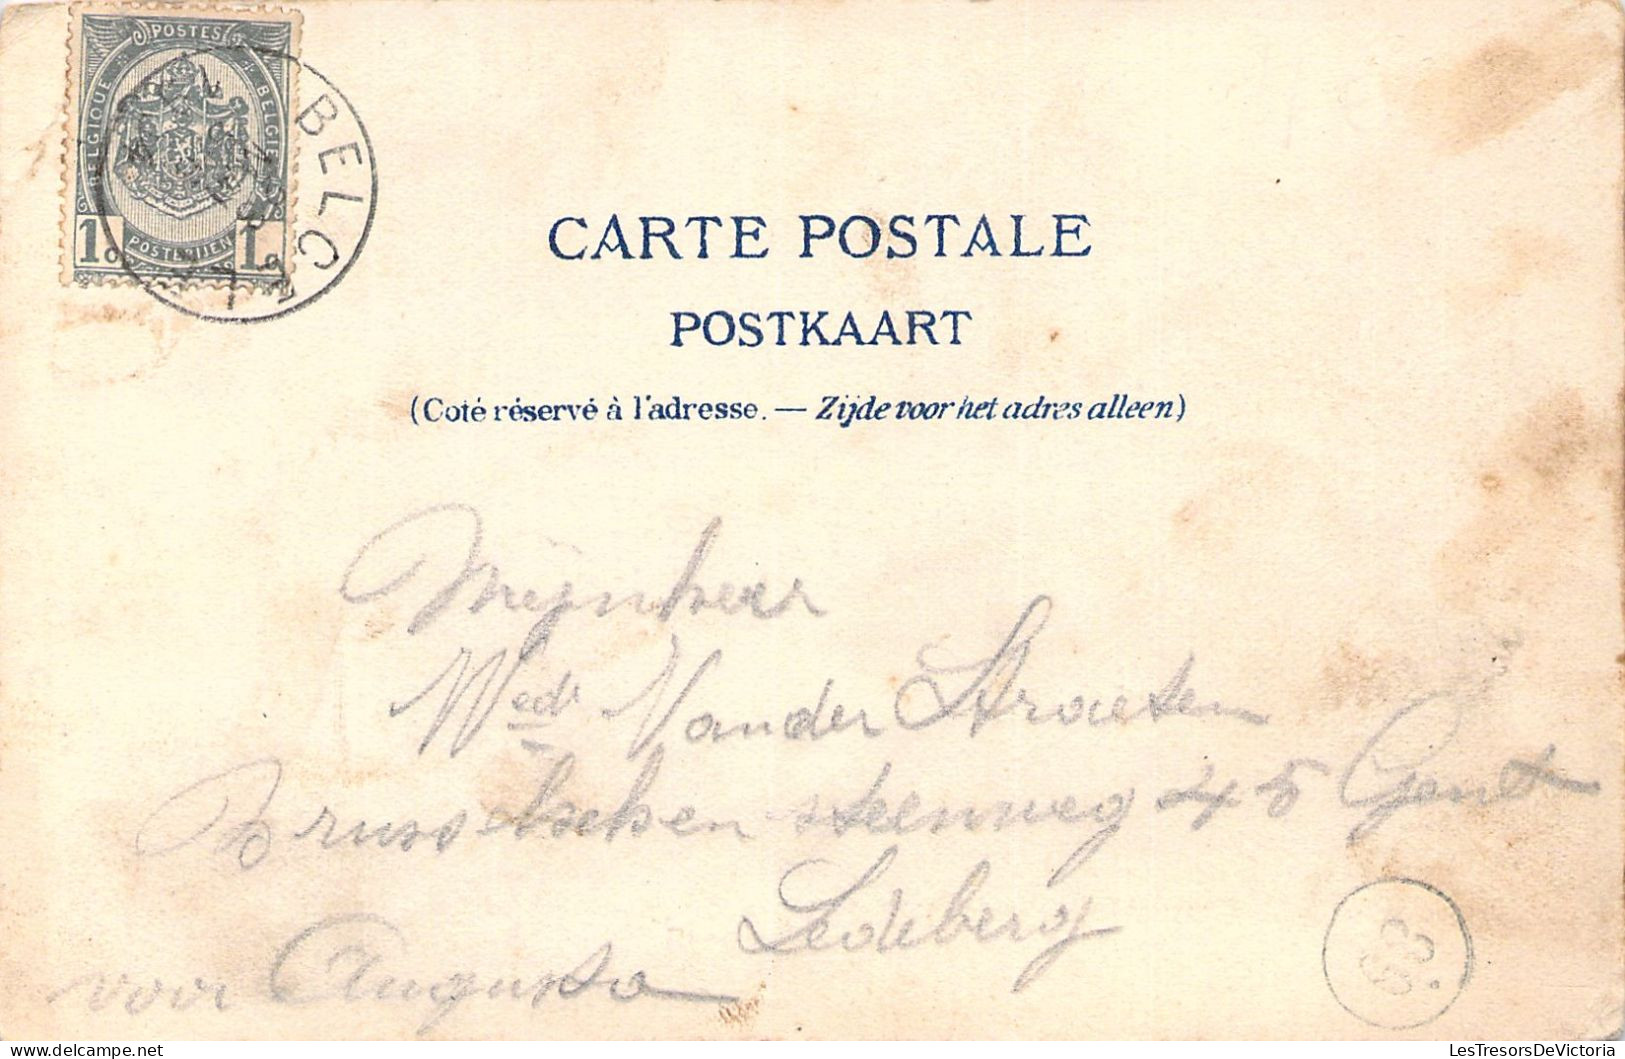 POSTES
BELGIQUE
BELGIË
1c
POSTERIJEN
1c
CARTE POSTALE
POSTKAART
(Coté réservé à l'adresse. — Zijde voor het adres alleen)
Mijnheer
Wedr Van der Straeten
Brusselschen steenweg 45 Gent
Ledeberg
voor Augusta
LesTresorsDeVictoria